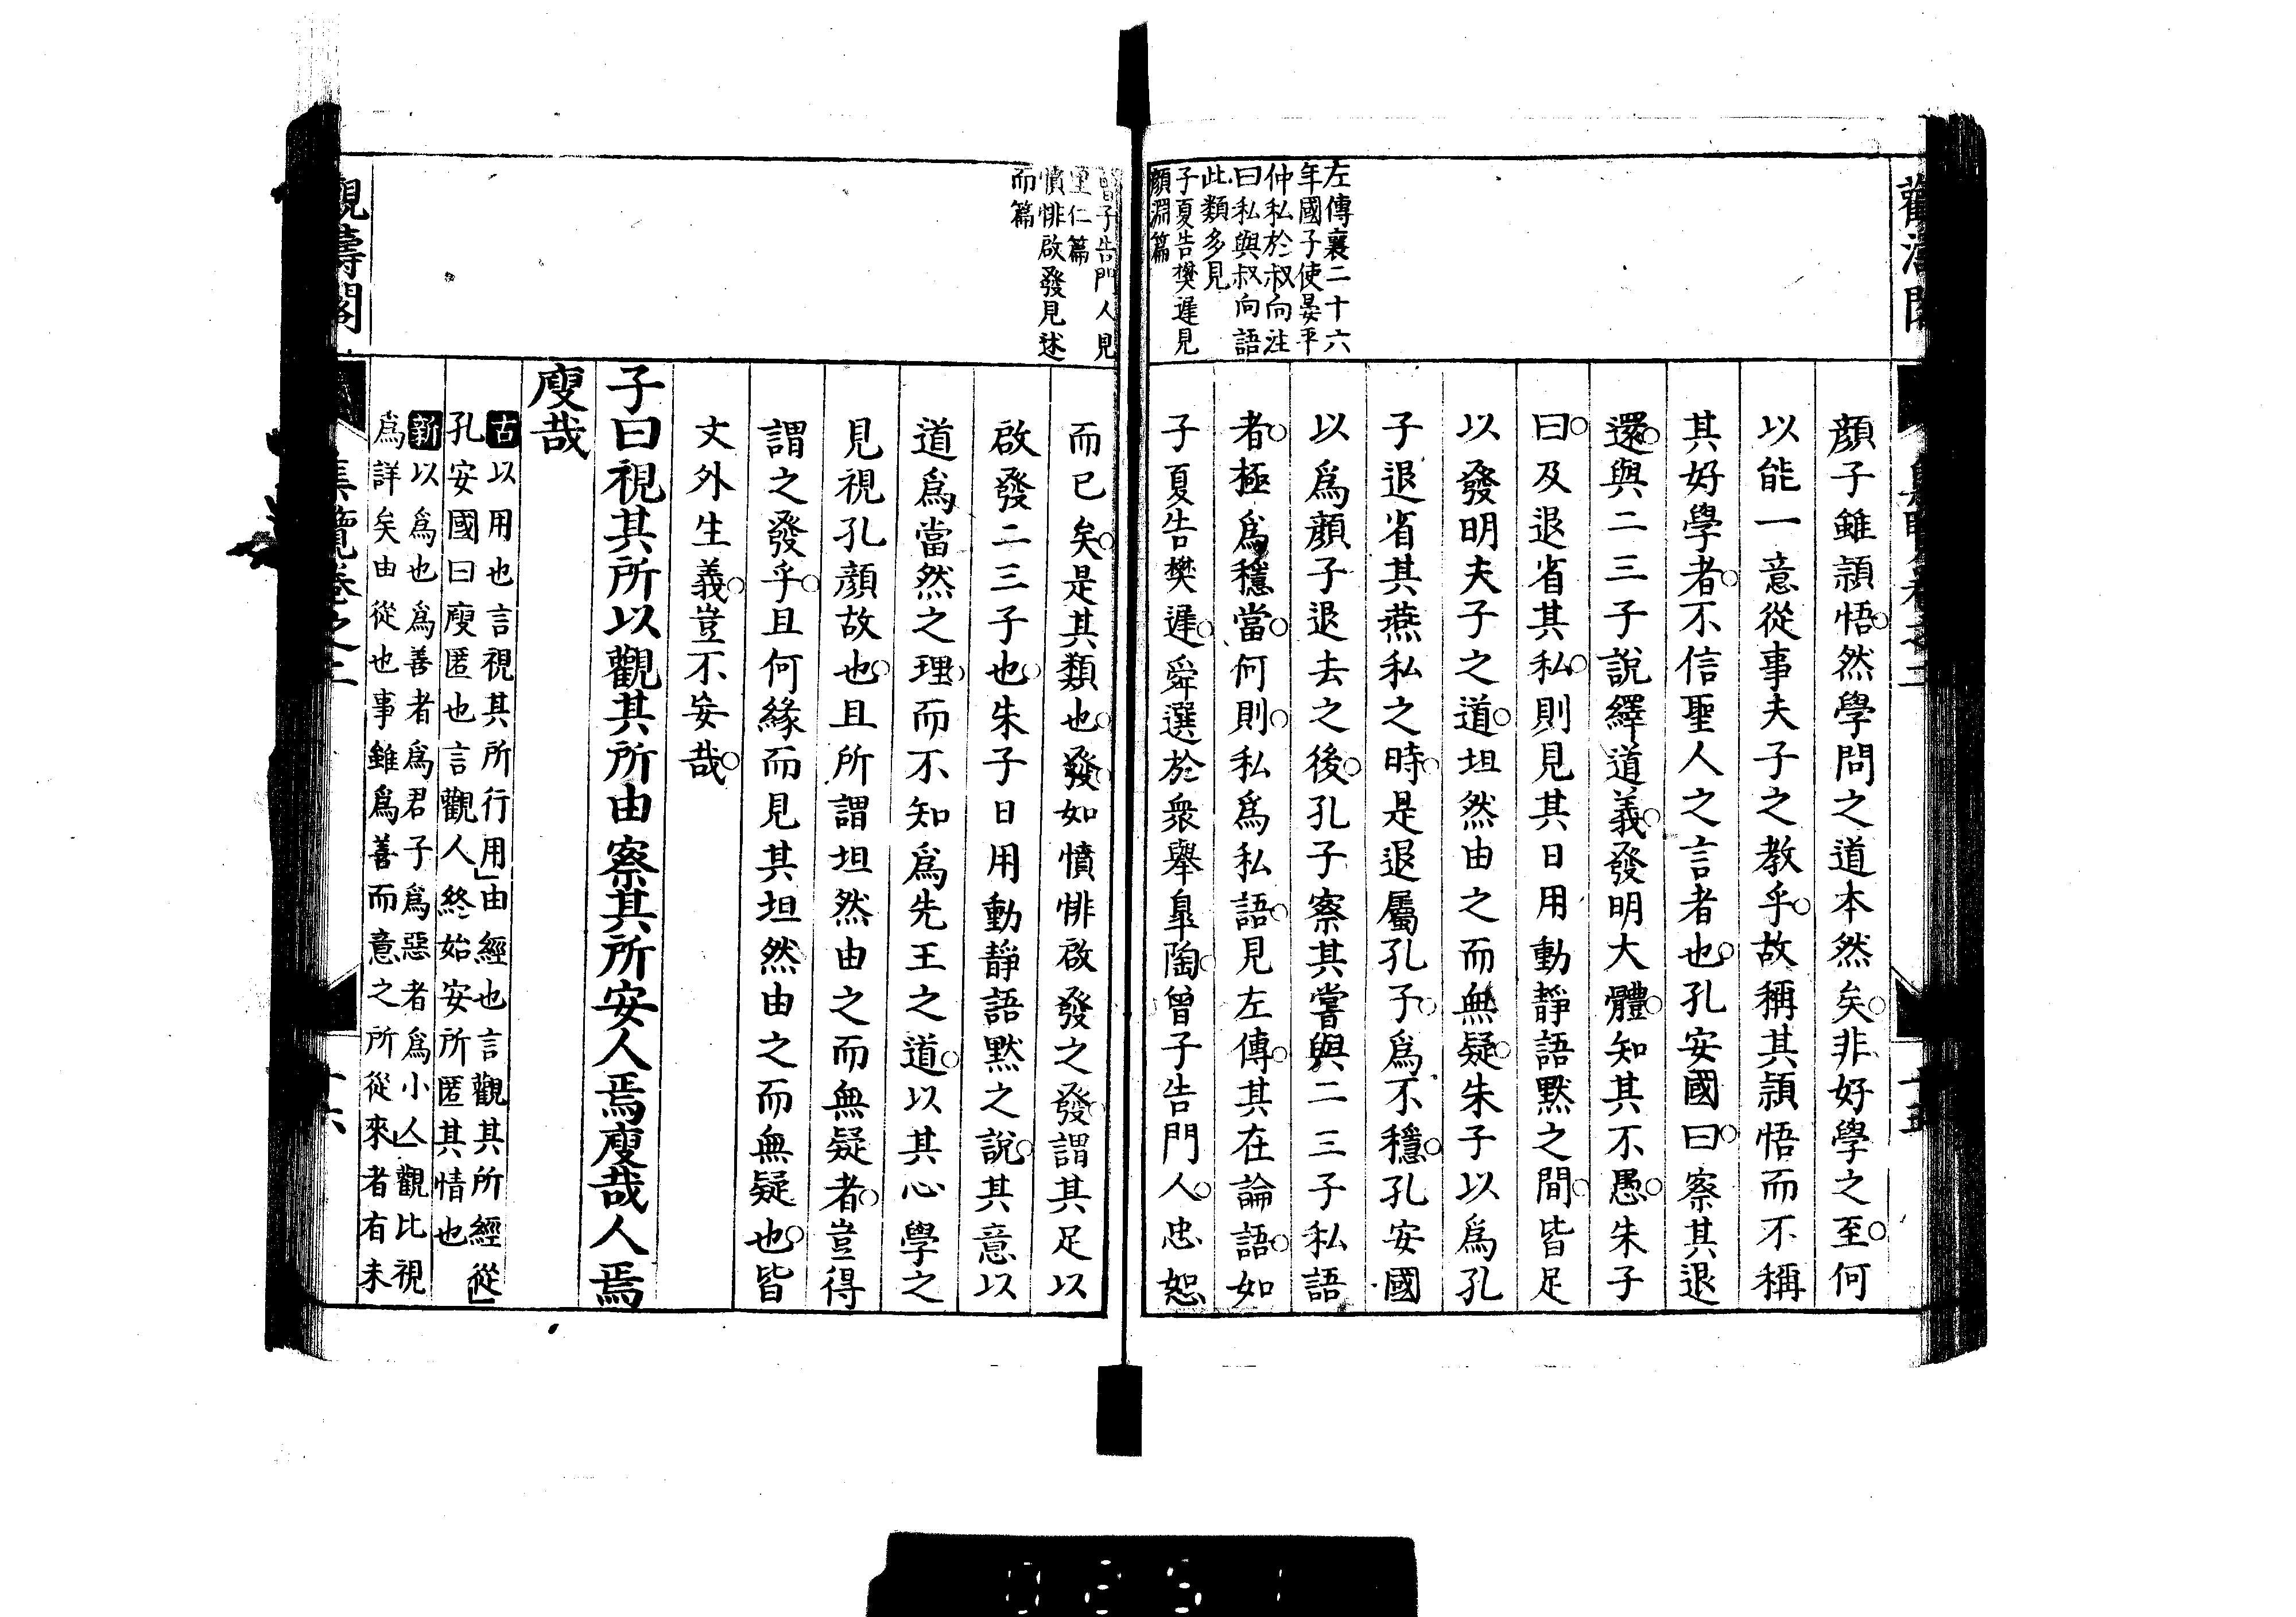 左傳襄二十六
年國子使晏平
仲私於叔向注
曰私與叔向語
此類多見
子夏告樊遲見
顏淵篇
顏子雖頴悟然學問之道本然矣非好學之至何
以能一意從事夫子之教乎故稱其頴悟而不稱
其好學者不信聖人之言者也孔安國曰察其退
還與二三子說繹道義發明大體知其不愚朱子
曰及退省其私則見其日用動靜語默之間皆足
以發明夫子之道坦然由之而無疑朱子以爲孔
子退省其燕私之時是退屬孔子爲不穩孔安國
以爲顏子退去之後孔子察其嘗與二三子私語
者極爲穩當何則私爲私語見左傳其在論語如
子夏告樊遲舜選於衆舉臯陶曾子告門人忠恕
曾子告門人見
里仁篇
憤悱啟發見述
而篇
而已矣是其類也發如憤悱啟發之發謂其足以
啟發二三子也朱子日用動靜語默之說其意以
道爲當然之理而不知爲先王之道以其心學之
見視孔顏故也且所謂坦然由之而無疑者豈得
謂之發乎且何緣而見其坦然由之而無疑也皆
文外生義豈不妄哉
子曰視其所以觀其所由察其所安人焉廋哉人焉
廋哉
古以用也言視其所行用由經也言觀其所經從
孔安國曰廋匿也言觀人終始安所匿其情也
新以爲也爲善者爲君子爲惡者爲小人觀比視
爲詳矣由從也事雖爲善而意之所從來者有未
觀濤閣
集覽卷之二
十六